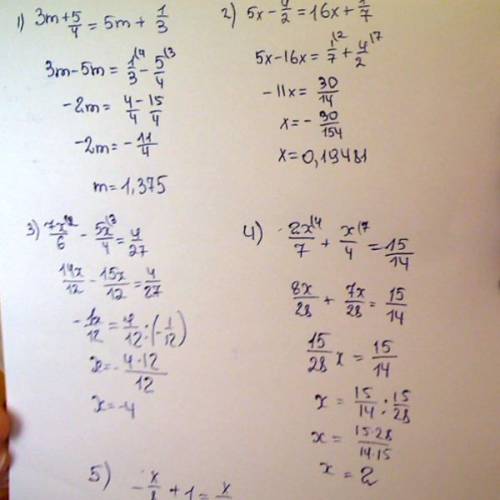 1) 3m + 5/4 = 5m + 1/3
3m - 5m = 1/3 |4 - 5/4 |3
-2m = 4/4 - 15/4
-2m = -11/4
m = 1,375
2) 5x - 4/2 = 16x + 1/7
5x - 16x = 1/7 |2 + 4/2 |7
-11x = 30/14
x = - 30/154
x = 0,19481
3) 7x/6 |2 - 5x/4 |3 = 4/27
14x/12 - 15x/12 = 4/27
- 1x/12 = 4/12 : (-1/12)
x = - 4·12/12
x = -4
4) 2x/7 |4 + x/4 |7 = 15/14
8x/28 + 7x/28 = 15/14
15/28 x = 15/14
x = 15/14 : 15/28
x = 15·28/14·15
x = 2
5) - x/ + 1 = x/